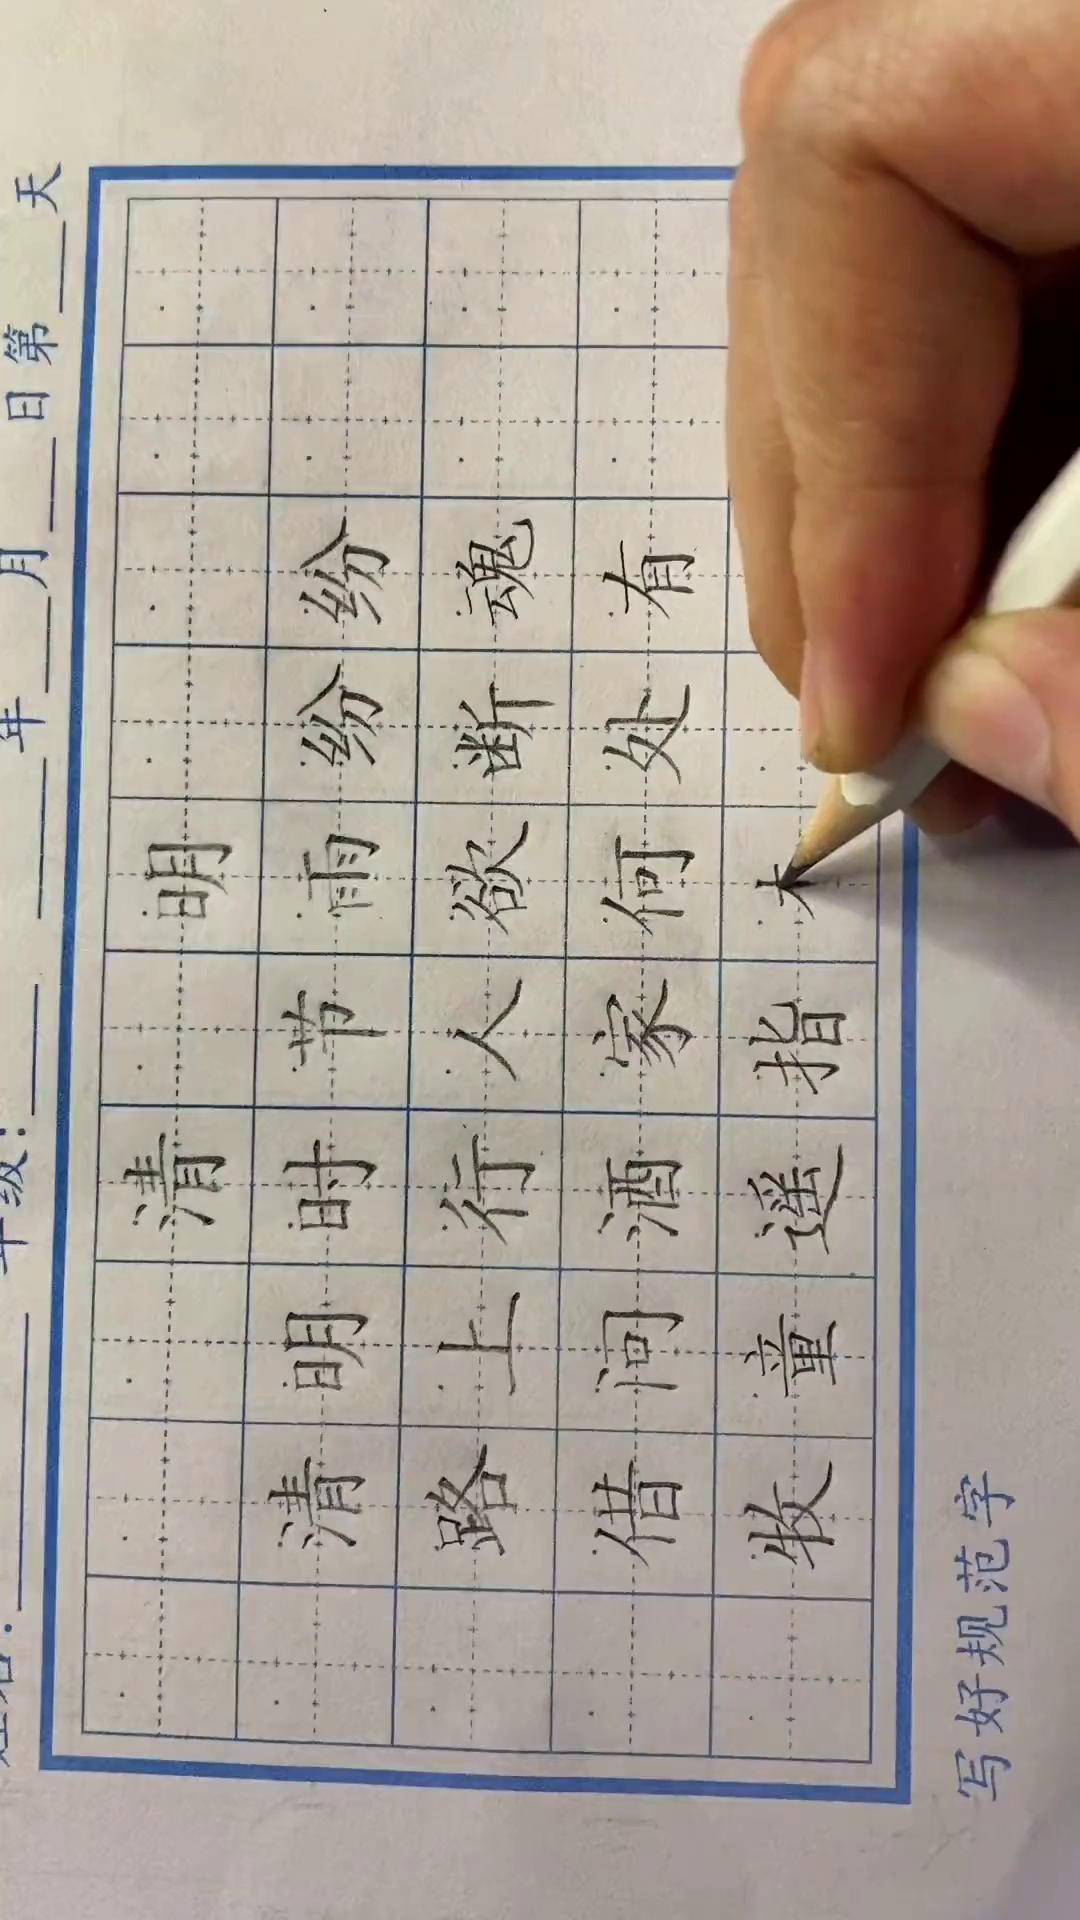 年级: 年 月 日 第 天
清明
清明时节雨纷纷
路上行人欲断魂
借问酒家何处有
牧童遥指
写好规范字